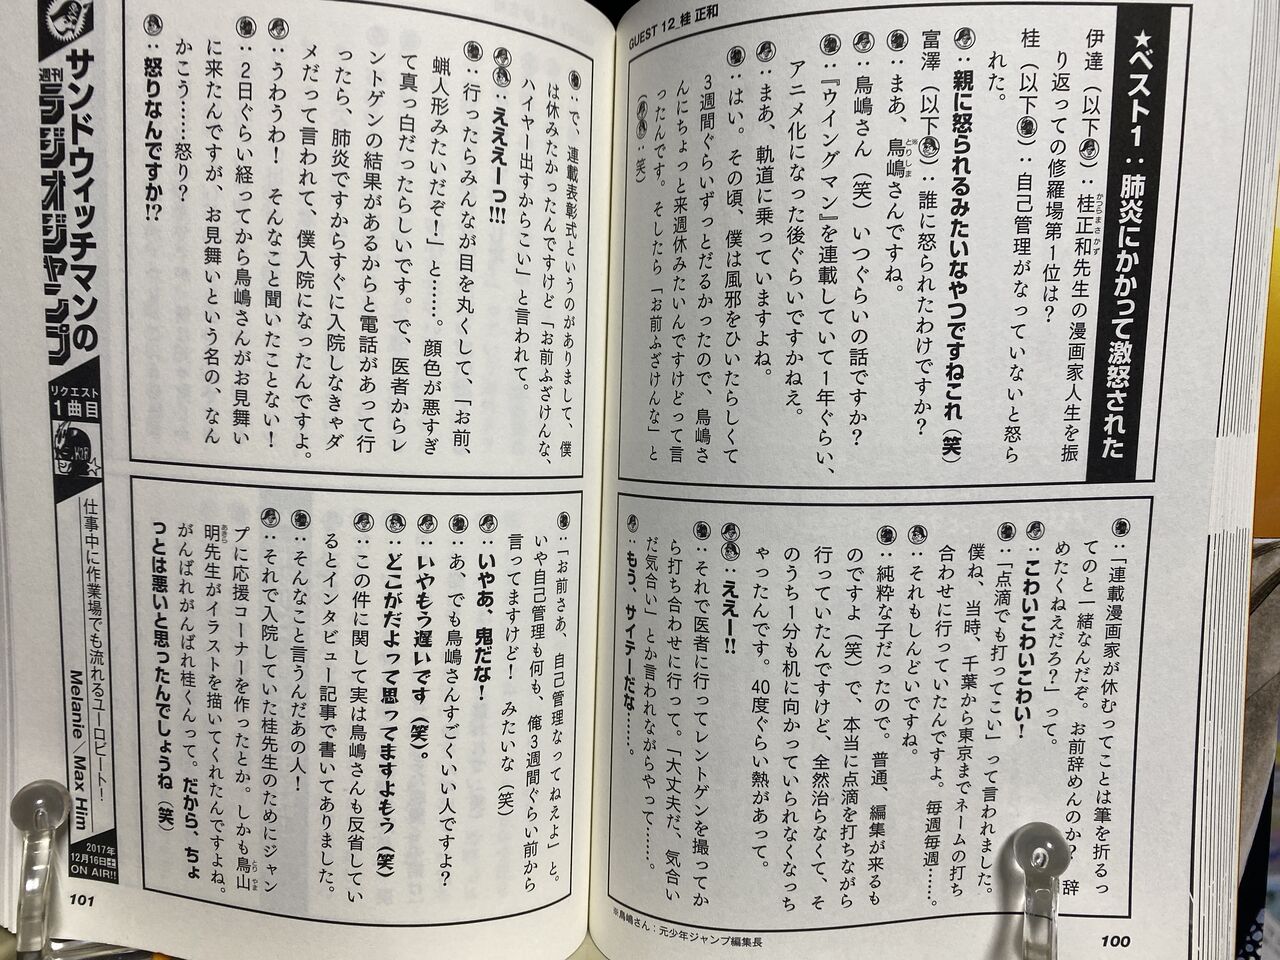 GUEST 12_桂 正和
★ベスト1：肺炎にかかって激怒された
伊達（以下）：桂正和先生の漫画家人生を振
かつらまさかず
り返っての修羅場第1位は？
桂（以下）：自己管理がなっていないと怒ら
れた。
：親に怒られるみたいなやつですねこれ（笑）
富澤（以下）：誰に怒られたわけですか？
：まあ、鳥嶋さんですね。
※とりしま
：鳥嶋さん（笑）いつぐらいの話ですか？
：『ウイングマン』を連載していて1年ぐらい、
アニメ化になった後ぐらいですかねえ。
：まあ、軌道に乗っていますよね。
：はい。その頃、僕は風邪をひいたらしくて
3週間ぐらいずっとだるかったので、鳥嶋さ
んにちょっと来週休みたいんですけどって言
ったんです。そしたら「お前ふざけんな」と
（：笑）
：「連載漫画家が休むってことは筆を折るっ
てのと一緒なんだぞ。お前辞めんのか？　辞
めたくねえだろ？」って。
：こわいこわいこわい！
：「点滴でも打ってこい」って言われました。
僕ね、当時、千葉から東京までネームの打ち
合わせに行っていたんですよ。毎週毎週……。
：それもしんどいですね。
：純粋な子だったので。普通、編集が来るも
のですよ（笑）で、本当に点滴を打ちながら
行っていたんですけど、全然治らなくて、そ
のうち1分も机に向かっていられなくなっち
ゃったんです。40度ぐらい熱があって。
：ええー!!
：それで医者に行ってレントゲンを撮ってか
ら打ち合わせに行って。「大丈夫だ、気合い
だ気合い」とか言われながらやって……。
：もう、サイテーだな……。
※鳥嶋さん：元少年ジャンプ編集長
100
：で、連載表彰式というのがありまして、僕
は休みたかったんですけど「お前ふざけんな、
ハイヤー出すからこい」と言われて。
：えええーっ!!!
：行ったらみんなが目を丸くして、「お前、
蝋人形みたいだぞ！」と……。顔色が悪すぎ
て真っ白だったらしいです。で、医者からレ
ントゲンの結果があるからと電話があって行
ったら、肺炎ですからすぐに入院しなきゃダ
メだって言われて、僕入院になったんですよ。
：うわうわ！　そんなこと聞いたことない！
：2日ぐらい経ってから鳥嶋さんがお見舞い
に来たんですが、お見舞いという名の、なん
かこう……怒り？
：怒りなんですか!?
：「お前さあ、自己管理なってねえよ」と。
いや自己管理も何も、俺3週間ぐらい前から
言ってますけど！　みたいな（笑）
：いやあ、鬼だな！
：あ、でも鳥嶋さんすごくいい人ですよ？
：いやもう遅いです（笑）。
：どこがだよって思ってますよもう（笑）
：この件に関して実は鳥嶋さんも反省してい
るとインタビュー記事で書いてありました。
：そんなこと言うんだあの人！
：それで入院していた桂先生のためにジャン
プに応援コーナーを作ったとか。しかも鳥山
とりやま
明先生がイラストを描いてくれたんですよね。
あきら
がんばれがんばれ桂くんって。だから、ちょ
っとは悪いと思ったんでしょうね（笑）
サンドウィッチマンの
週刊ラジオジャンプ
リクエスト
1曲目
仕事中に作業場でも流れるユーロビート！
Melanie／Max Him
2017年
12月16日土
ON AIR!!
101